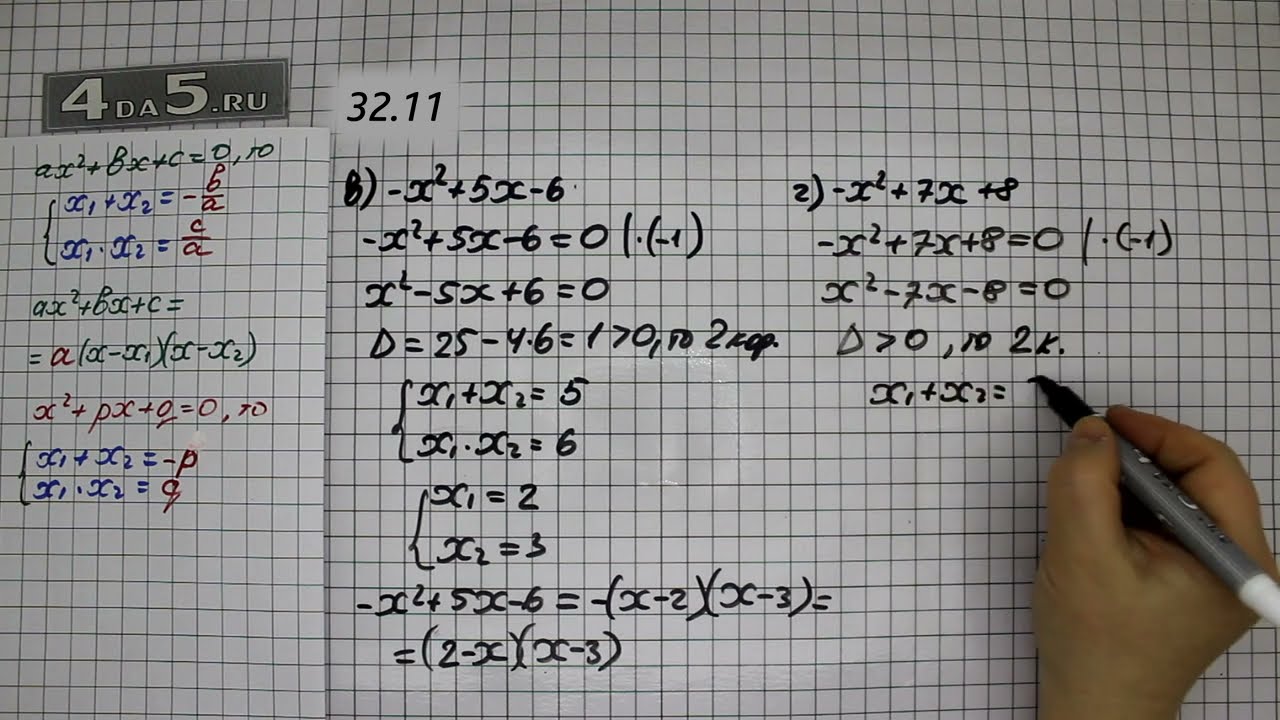 4DA5.RU
32.11
ax²+вx+c=0, то
x₁+x₂=-в/a
x₁·x₂=c/a
ax²+вx+c=
=a(x-x₁)(x-x₂)
x²+px+q=0, то
x₁+x₂=-p
x₁·x₂=q
в) -x²+5x-6
-x²+5x-6=0 |·(-1)
x²-5x+6=0
D=25-4·6=1>0, то 2 кор.
x₁+x₂=5
x₁·x₂=6
x₁=2
x₂=3
-x²+5x-6=-(x-2)(x-3)=
=(2-x)(x-3)
г) -x²+7x+8
-x²+7x+8=0 |·(-1)
x²-7x-8=0
D>0, то 2 к.
x₁+x₂=